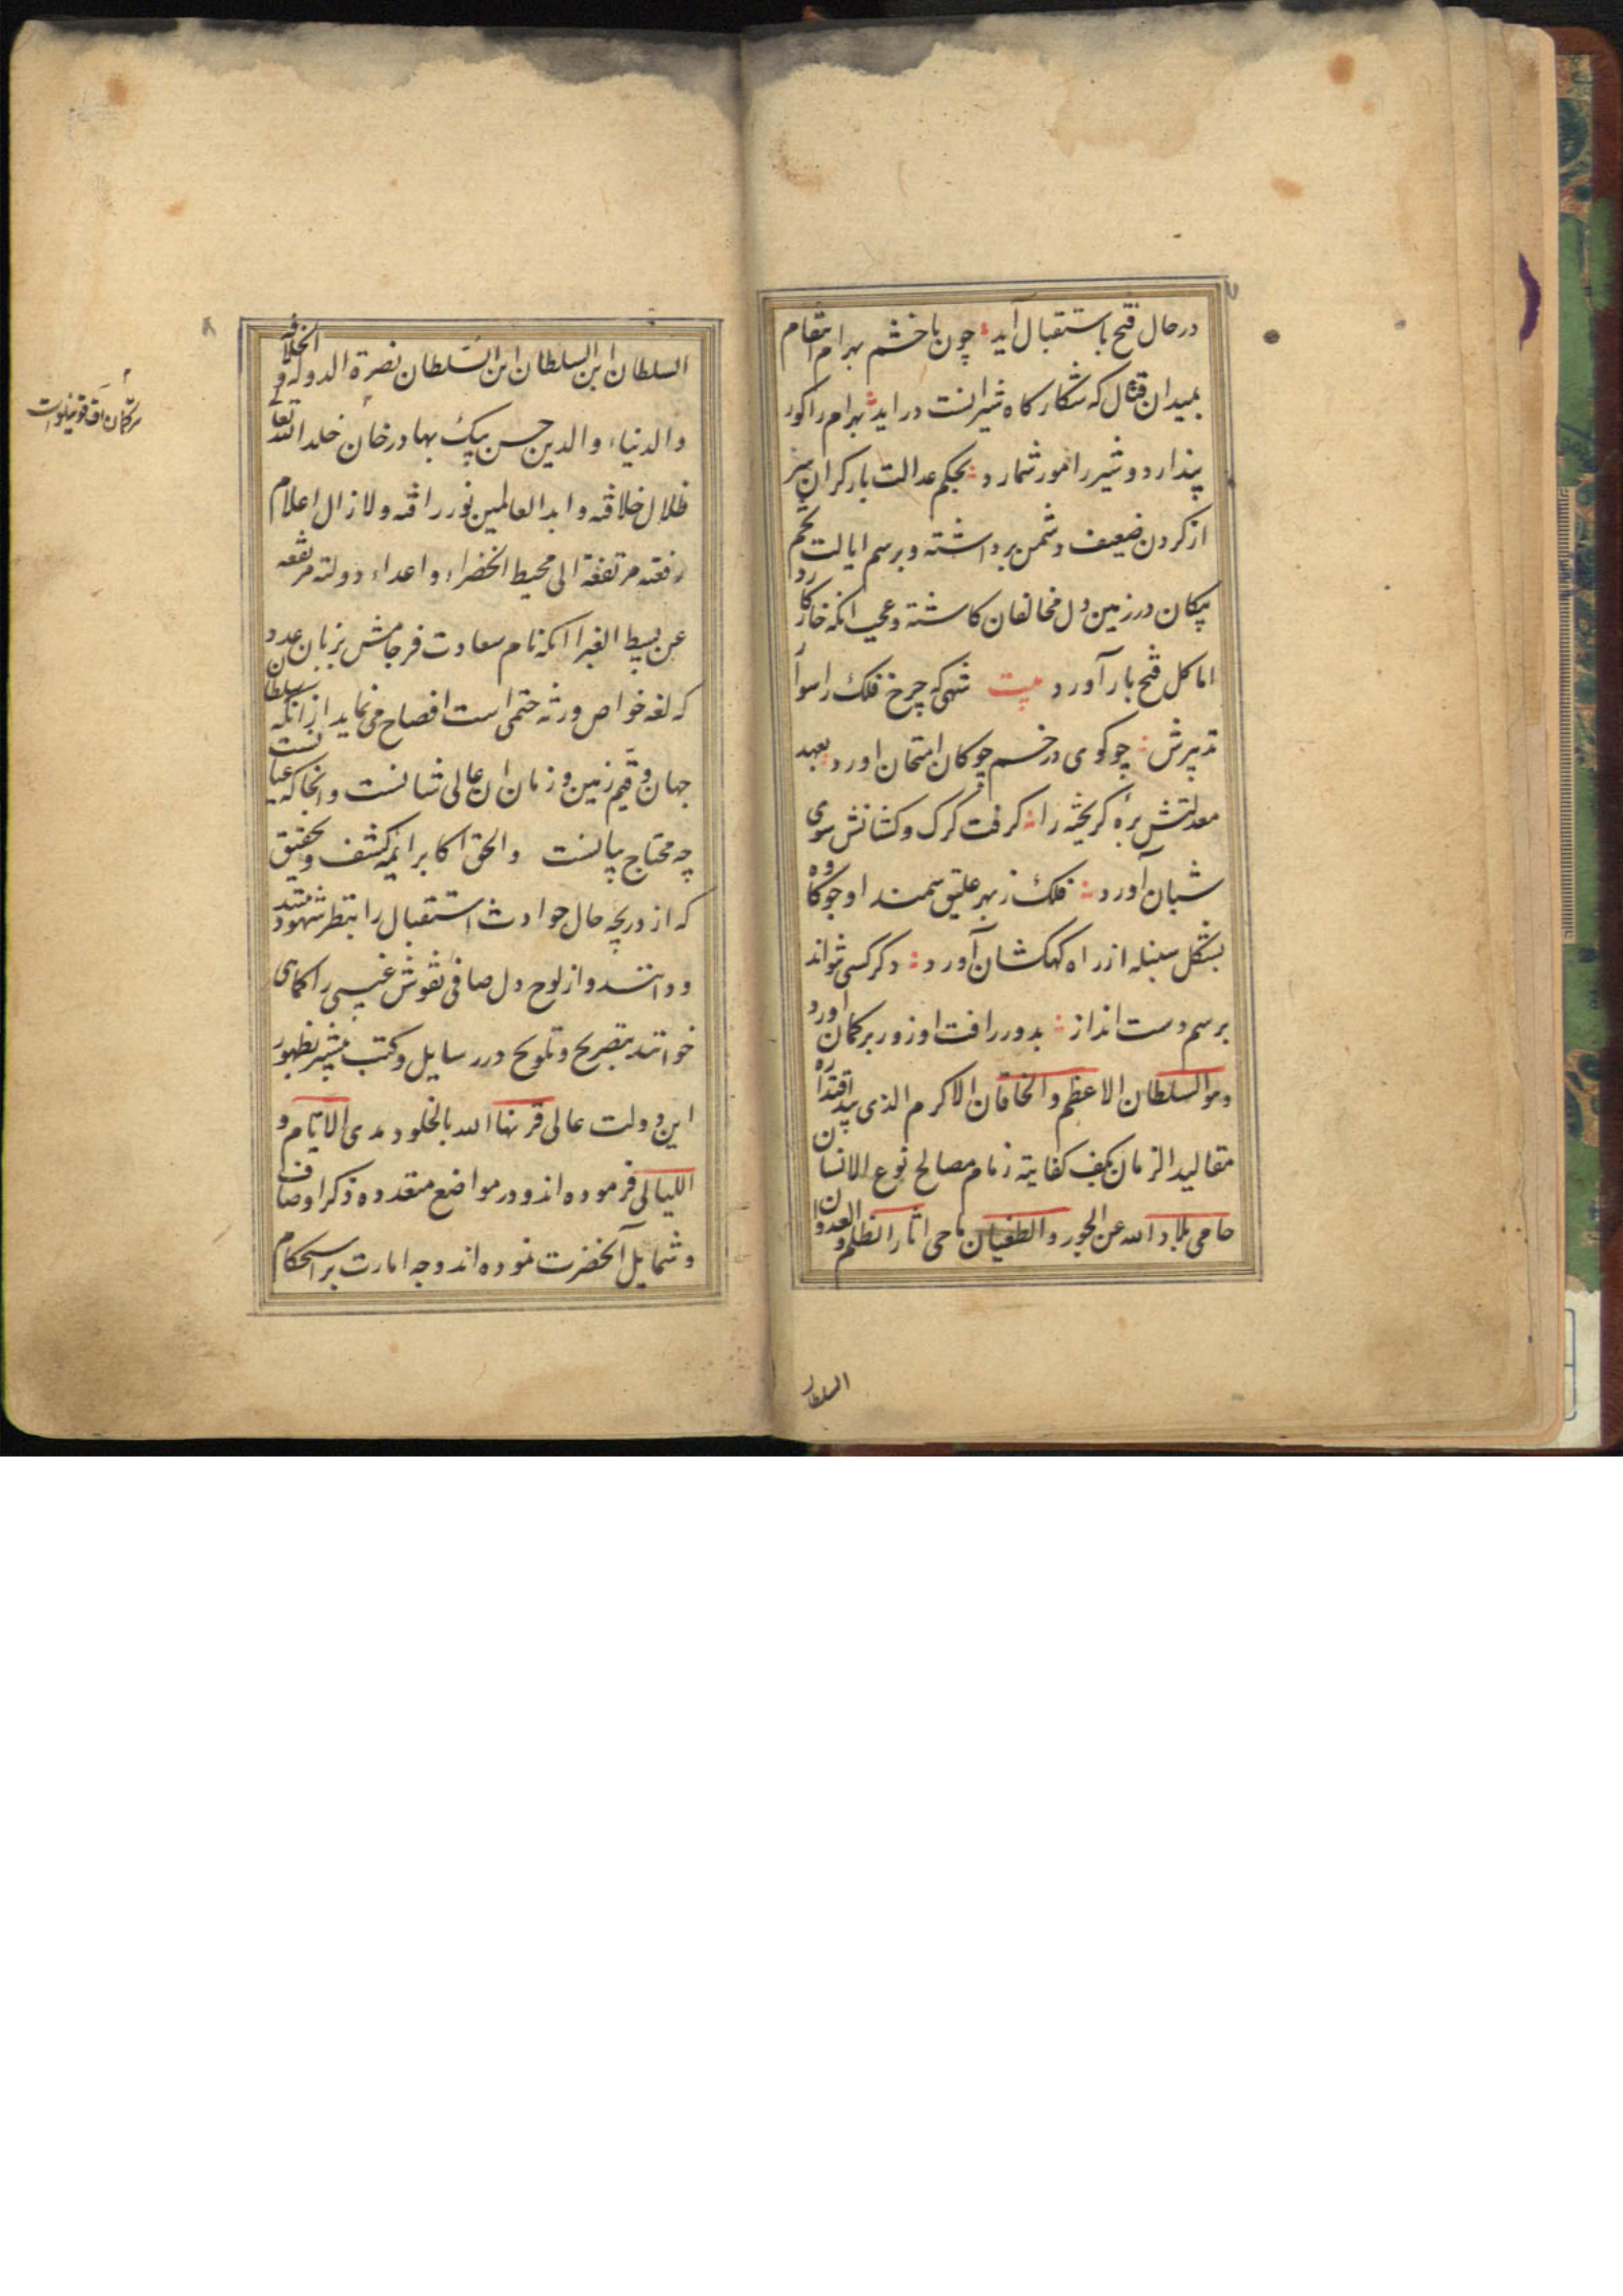 ۷
درحال فتح باستقبال آید چون با خشم بهرام انتقام
بمیدان قتال که شکارکاه شیرانست دراید بهرام را کور
پندارد و شیر را مور شمارد بحکم عدالت بارکران سر
از کردن ضعیف دشمن برداشته و برسم ایالت تخم
پیکان در زمین دل مخالفان کاشته و عجب انکه خار کارد
اما کل فتح بار آورد بیت شهی که چرخ فلک را سوا
تدبیرش چو کوی در خم چوکان امتحان اورد بعهد
معدلتش برهٔ کریخته را کرفت کرک و کشانش سوی
شبان آورد فلک ز بهر علیق سمند او جو کاه
بشکل سنبله از راه کهکشان آورد دکر کسی نتواند
برسم دست انداز بدور رافت او زور بر کمان اورد
وهو السلطان الاعظم والخاقان الاکرم الذی بید اقتداره
مقالید الزمان بکف کفایته زمام مصالح نوع الانسان
حامی بلاد الله عن الجور والطغیان ماحی اثار الظلم والعدوان
السلطان
۸
السلطان ابن السلطان ابن السلطان نصرة الدوله و الخلافه
والدنیاء والدین حسن بیک بهادر خان خلد الله تعالی
ظلال خلافته و ابد العالمین نور رافته ولا زال اعلام
رفعته مرتفعة الی محیط الخضراء و اعداء دولته مرتفعه
عن بسیط الغبرا انکه نام سعادت فرجامش بزبان عدد
که لغه خواص ورثه ختمی است افصاح می نماید از انکه سلطان
جهان و قیم زمین و زمان ان عالی شانست وانجا که عیانست
چه محتاج بیانست والحق اکابر ایمه کشف و تحقیق
که از دریچه حال حوادث استقبال را بنظر شهود
ودانند و از لوح دل صافی نقوش غیبی را کماهی
خوانند بتصریح و تلویح در رسایل و کتب مبشر بظهور
این دولت عالی قرنها الله بالخلود مدی الایام و
اللیالی فرموده اند و در مواضع متعدده ذکر اوصاف
و شمایل آنحضرت نموده اند و جه امارت بر استحکام
ترکمان اق قوینلوست